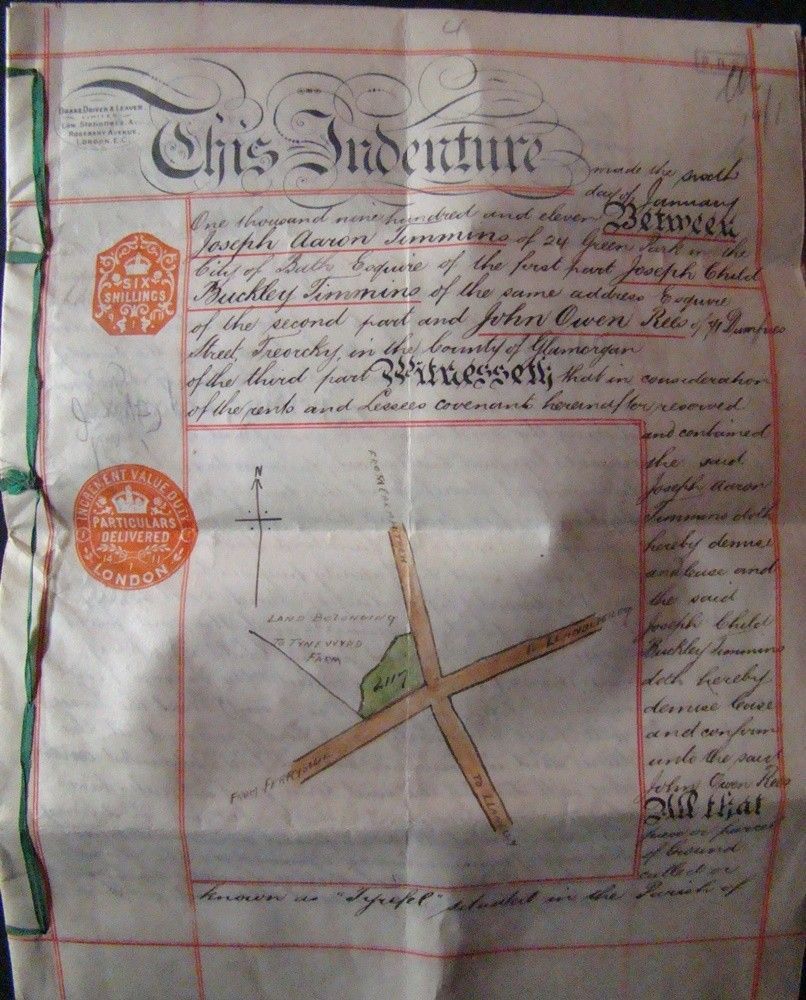 DRAKE DRIVER & LEAVER
LIMITED
LAW STATIONERS &
ROSEBERY AVENUE,
LONDON E.C.
This Indenture
made the sixth
day of January
One thousand nine hundred and eleven Between
Joseph Aaron Timmins of 24 Green Park in the
City of Bath Esquire of the first part Joseph Child
Buckley Timmins of the same address Esquire
of the second part and John Owen Rees of 41 Dumfries
Street, Treorcky, in the County of Glamorgan
of the third part Witnesseth that in consideration
of the rents and Lessees covenants hereinafter reserved
and contained
the said
Joseph Aaron
Timmins doth
hereby demise
and lease and
the said
Joseph Child
Buckley Timmins
doth hereby
demise lease
and confirm
unto the said
John Owen Rees
All that
piece or parcel
of Ground
called or
known as "Tyrefel" situated in the Parish of
SIX
SHILLINGS
INCREMENT VALUE DUTY
PARTICULARS
DELIVERED
14 11
1
LONDON
N
LAND BELONGING
TO TYNEWYDD
FARM
2117
FROM
FROM FERRYSIDE
TO